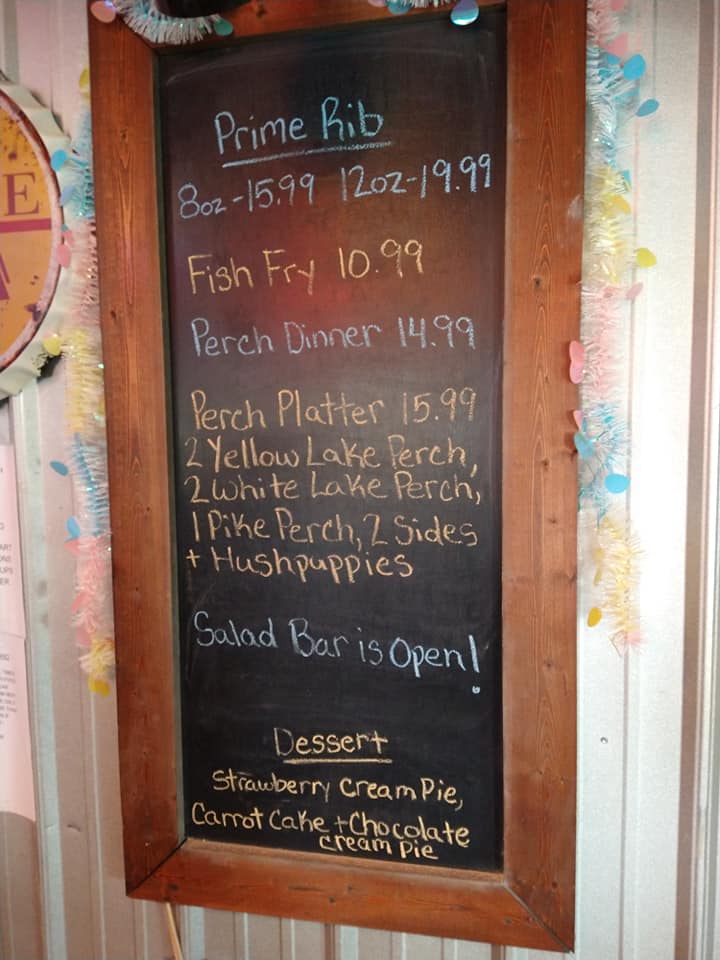 Prime Rib
8oz-15.99 12oz-19.99
Fish Fry 10.99
Perch Dinner 14.99
Perch Platter 15.99
2 Yellow Lake Perch,
2 White Lake Perch,
1 Pike Perch, 2 Sides
+ Hushpuppies
Salad Bar is Open!
Dessert
Strawberry Cream Pie,
Carrot Cake + Chocolate
cream pie
E